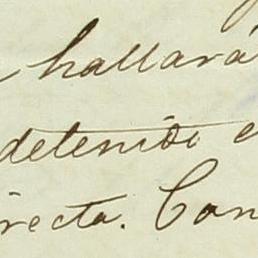 hallará
detenido e
recta. Con